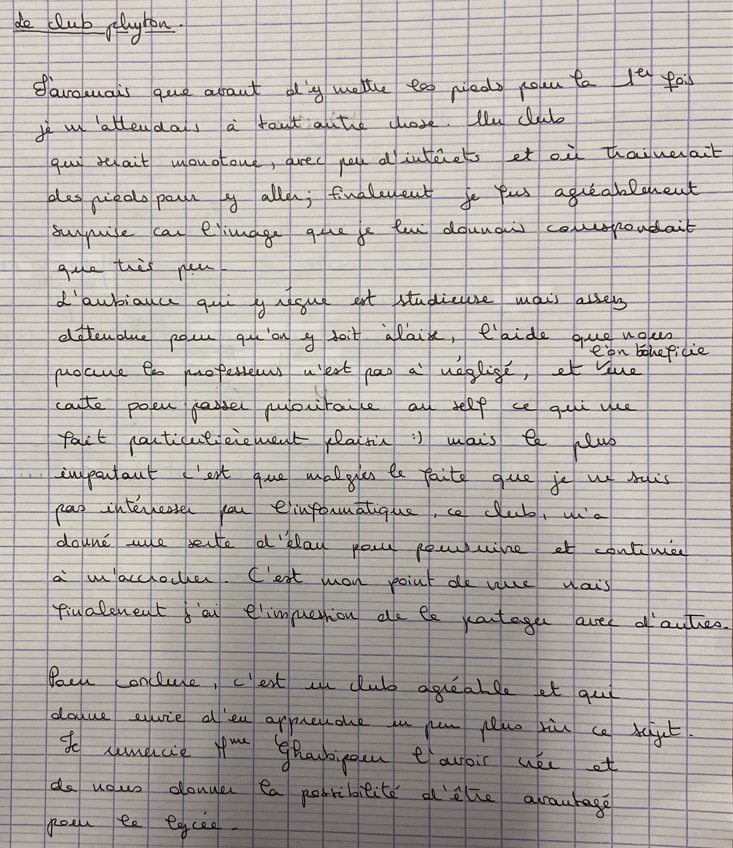 Le club phyton.
J'avouais que avant d'y mettre les pieds pour la 1er fois
je m'attendais à tout autre chose. Un club
qui serait monotone, avec peu d'intérêts et où trainerait
des pieds pour y aller; finalement je fus agréablement
surprise car l'image que je lui donnais correspondait
que très peu.
L'ambiance qui y règne est studieuse mais assez
détendue pour qu'on y soit à l'aise, l'aide que nous
procure les professeurs n'est pas à négligé, et l'on bénéficie une
carte pour passer prioritaire au self ce qui me
fait particulièrement plaisir :) mais le plus
important c'est que malgrés le faite que je ne suis
pas intéresser par l'informatique, ce club, m'a
donné une sorte d'élan pour poursuivre et continuée
à m'accrocher. C'est mon point de vue mais
finalement j'ai l'impression de le partager avec d'autres.
Pour conclure, c'est un club agréable et qui
donne envie d'en apprendre un peu plus sûr ce sujet.
Je remercie Mme Gharbi pour l'avoir crée et
de nous donner la possibilité d'être avantagé
pour le lycée.